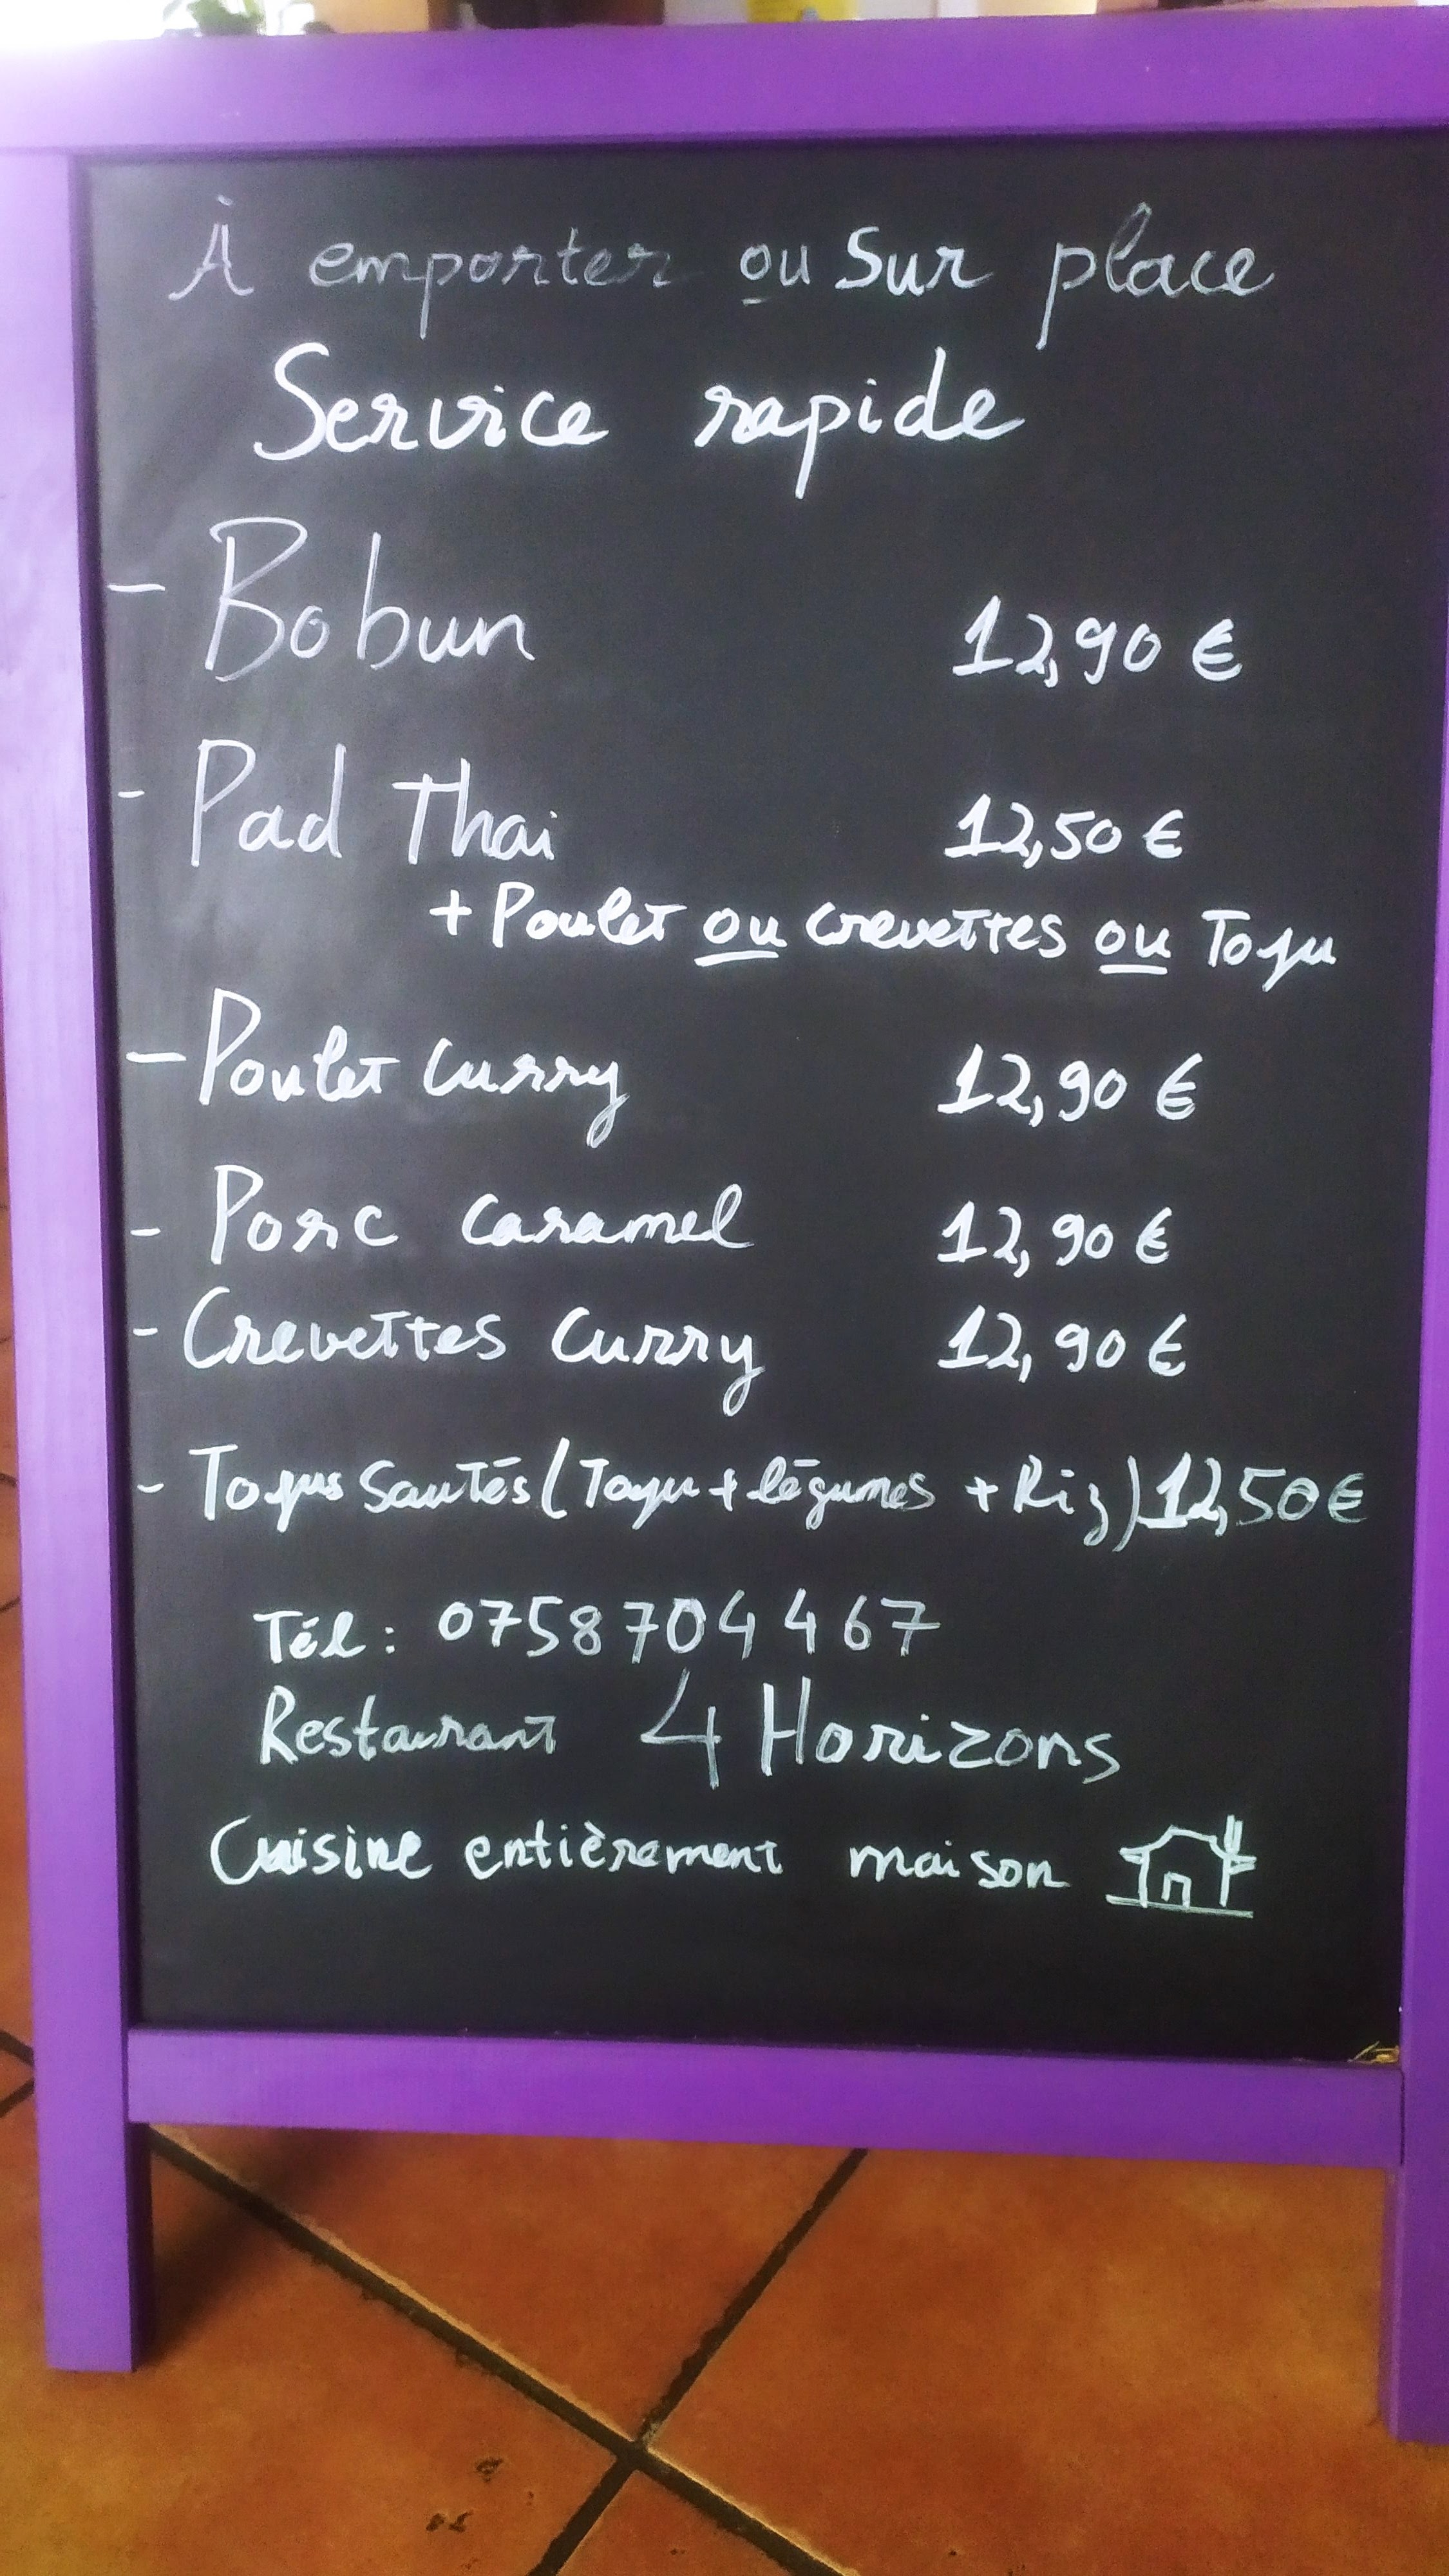 À emporter ou sur place
Service rapide
- Bobun 12,90 €
- Pad Thai 12,50 €
+ Poulet ou crevettes ou Tofu
- Poulet curry 12,90 €
- Porc caramel 12,90 €
- Crevettes Curry 12,90 €
- Tofus Sautés (Tofu + légumes + Riz) 12,50 €
Tél : 0758704467
Restaurant 4 Horizons
Cuisine entièrement maison